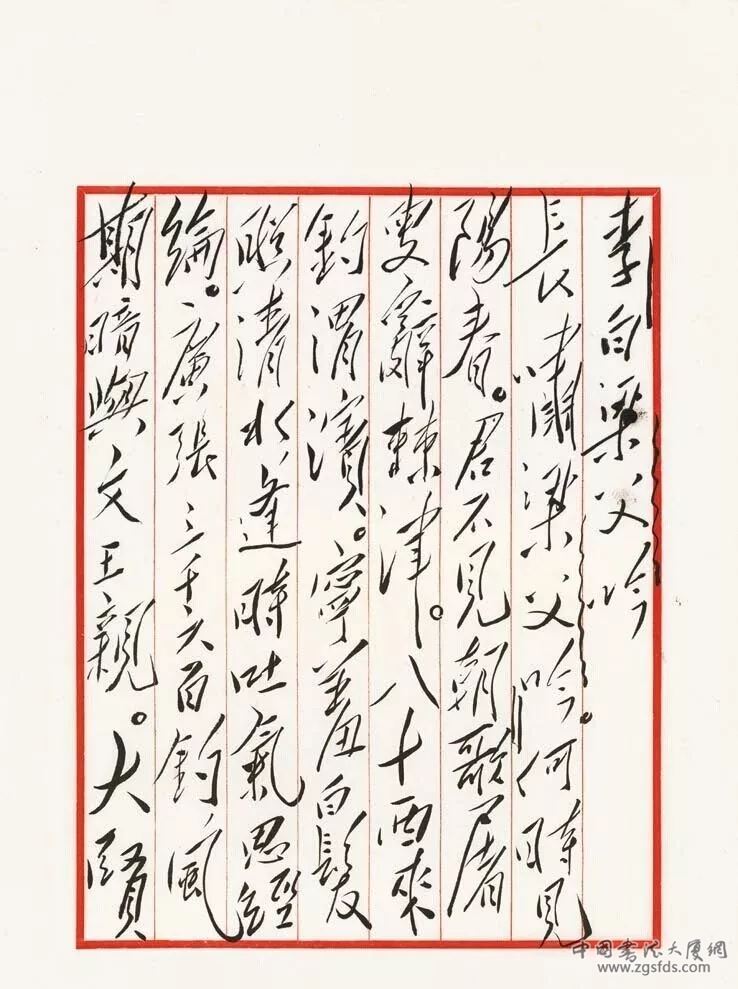 李白梁父吟
長嘯梁父吟。何時見
陽春。君不見朝歌屠
叟辭棘津。八十西來
釣渭濱。寧羞白髮
照清水逢時吐氣思經
綸。廣張三千六百釣風
期暗與文王親。大賢
中國書法大厦網
www.zgsfds.com